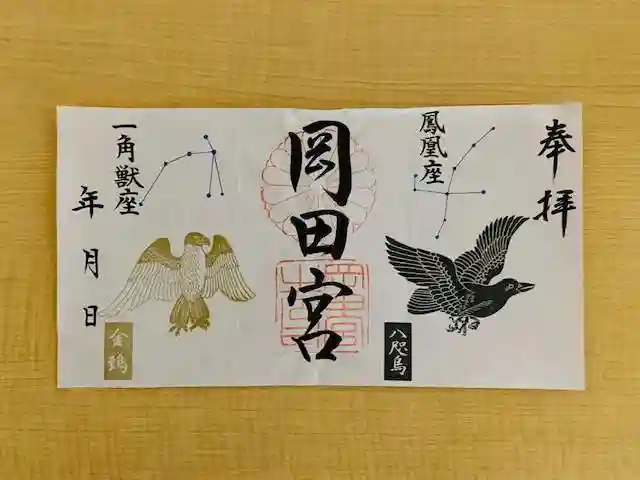 奉拝
鳳凰座
八咫烏
岡田宮
一角獣座
金鵄
年月日